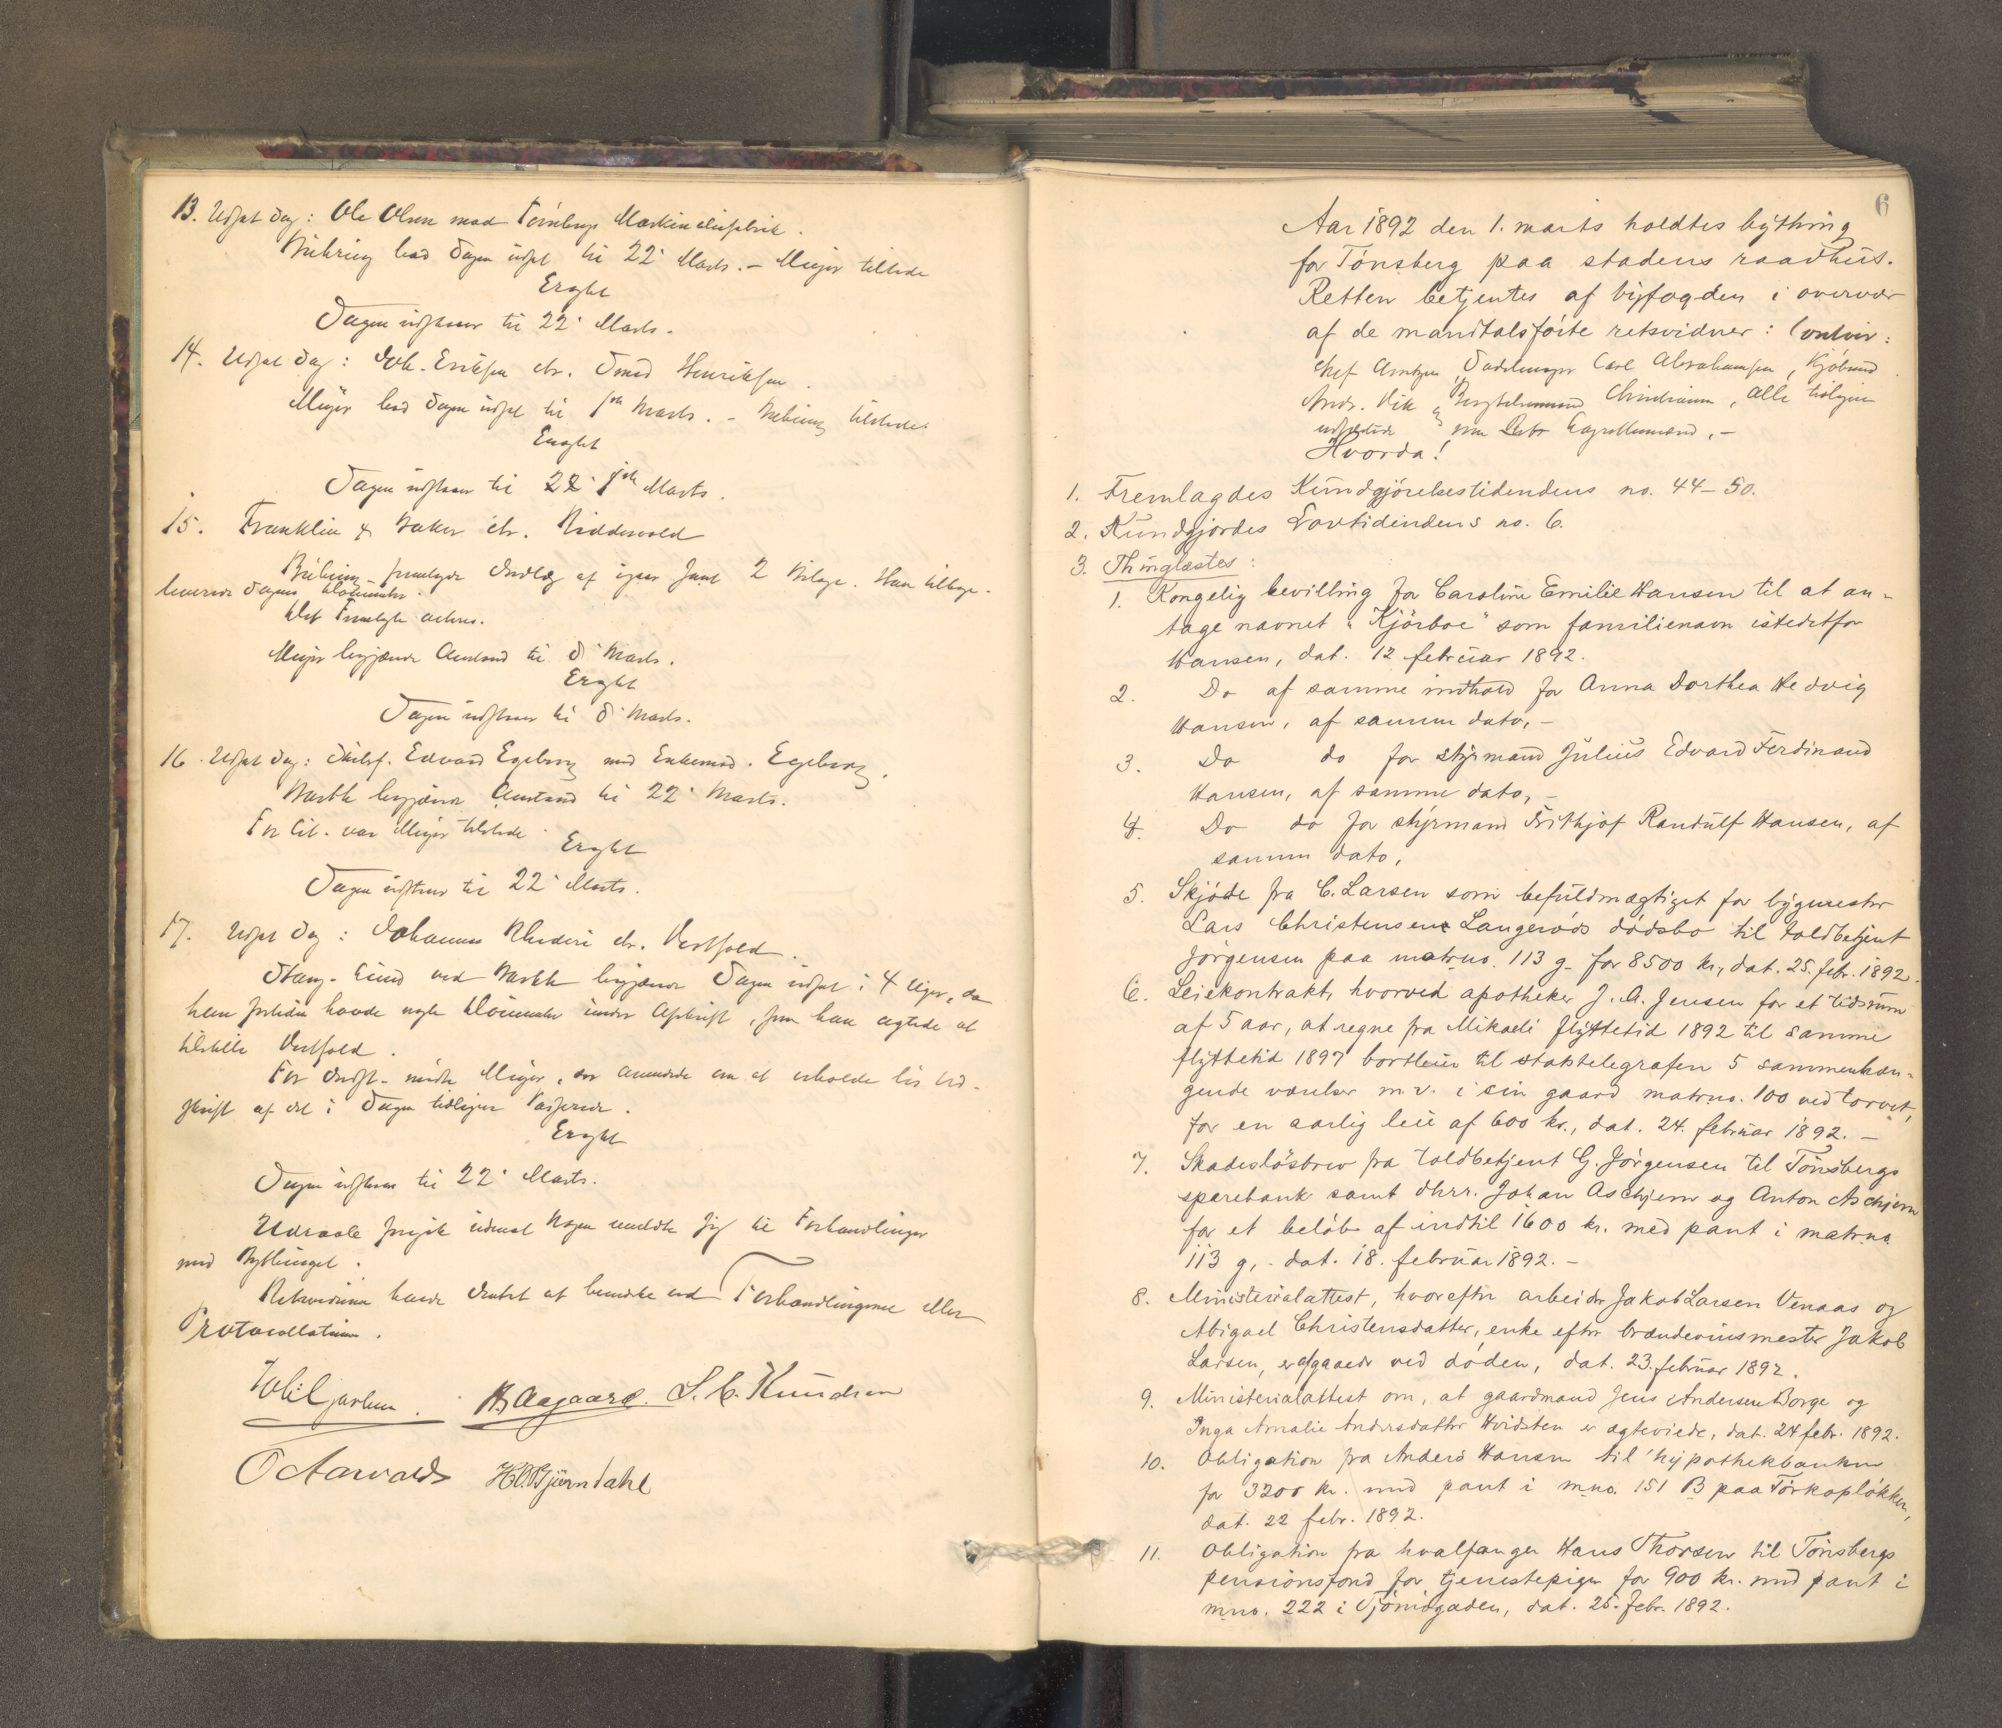 13. Udsat Sag: Ole Olsen mod Tønsbergs
bad Sagen udsat til 22' Marts. – Meyer tilstede
Eragtet
Sagen udsættes til 22' Marts.
14. Udsat Sag: Joh. Eriksen ctr. Smed Henriksen.
Meyer bad Sagen udsat til Marts. – tilstede.
Eragtet
Sagen udsættes til Marts.
15. Franklin & Baker ctr. Ridderwold
fremlagde Indlæg af jsam 2 Bilage. Han tilbage-
leverede Sagens Dokumenter.
Det Fremlagte
Meyer begjærede Anstand til 8' Marts.
Eragtet
Sagen udsættes til 8' Marts.
16. Udsat Sag: Edvard Egeberg mod Egeberg.
begjærede Anstand til 22' Marts.
For Cit. var Meyer tilstede.
Eragtet
Sagen udsættes til 22' Marts.
17. Udsat Sag: Johannes ctr. Vestfold.
ved begjærede Sagen udsat i 4 Uger, da
han havde nogle Dokumenter under Afskrift, som han agtede at
tilstille Vestfold.
For mødte Meyer, som om at erholde
skrift af det i Sagen tidligere Passerede.
Eragtet
Sagen udsættes til 22' Marts.
Udraab foregik uden at Nogen meldte sig til Forhandlinger
med Bythinget.
Retsvidnerne havde Intet at bemærke ved Forhandlingerne eller
Protocollationen.
H. Aagaard. L. C. Knudsen
O Aarvolds H. O. Bjørndahl
6
Aar 1892 den 1. marts holdtes bything
for Tønsberg paa stadens raadhus.
Retten betjentes af byfogden i overvær
af de mandtalsførte retsvidner:
Arntzen, Sadelmager Carl Abrahamsen, Kjøbmd.
Andr. Vik og Christiansen, alle
Hvorda!
1. Fremlagdes Kundgjørelsestidendens no. 44–50.
2. Kundgjordes Lovtidendens no. 6.
3. Thinglæstes:
1. Kongelig bevilling for Caroline Emilie Hansen til at an-
tage navnet "Kjörboe" som familienavn istedetfor
Hansen, dat. 12 februar 1892.
2. Do af samme indhold for Anna Dorthea Hedvig
Hansen, af samme dato, –
3. Do do for styrmand Julius Edvard Ferdinand
Hansen, af samme dato, –
4. Do do for styrmand Frithjof Randulf Hansen, af
samme dato,
5. Skjøde fra C. Larsen som befuldmægtiget for bygmester
Lars Christensen Langerøds dødsbo til toldbetjent
Jørgensen paa matrno. 113 g. for 8500 kr., dat. 25. febr. 1892.
6. Leiekontrakt, hvorved apotheker J. A. Jensen for et tidsrum
af 5 aar, at regne fra Mikaeli flyttetid 1892 til samme
flyttetid 1897 bortleier til statstelegrafen 5 sammenhæn-
gende værelser m. v. i sin gaard matrno. 100 ved torvet,
for en aarlig leie af 600 kr., dat. 24. februar 1892. –
7. Skadesløsbrev fra toldbetjent G. Jørgensen til Tønsbergs
sparebank samt dhrr. Johan Aschjem og Anton Aschjem
for et beløb af indtil 1600 kr. med pant i matrno
113 g, dat. 18. februar 1892. –
8. Ministerialattest, hvorefter arbeider Jakob Larsen Venaas og
Abigael Christensdatter, enke efter brændevinsmester Jakob
Larsen, er afgaaede ved døden, dat. 23. februar 1892.
9. Ministerialattest om, at gaardmand Jens Andersen Borge og
Inga Amalie Andersdatter Hvidsten er ægteviede, dat. 24 febr. 1892.
10. Obligation fra Anders Hansen til hypothekbanken
for 3200 kr. med pant i mno. 151 B paa Tørkopløkken,
dat. 22 febr. 1892.
11. Obligation fra hvalfanger Hans Thorsen til Tønsbergs
pensionsfond for tjenestepiger for 900 kr. med pant i
mno. 222 i Tjømegaden, dat. 25. febr. 1892.